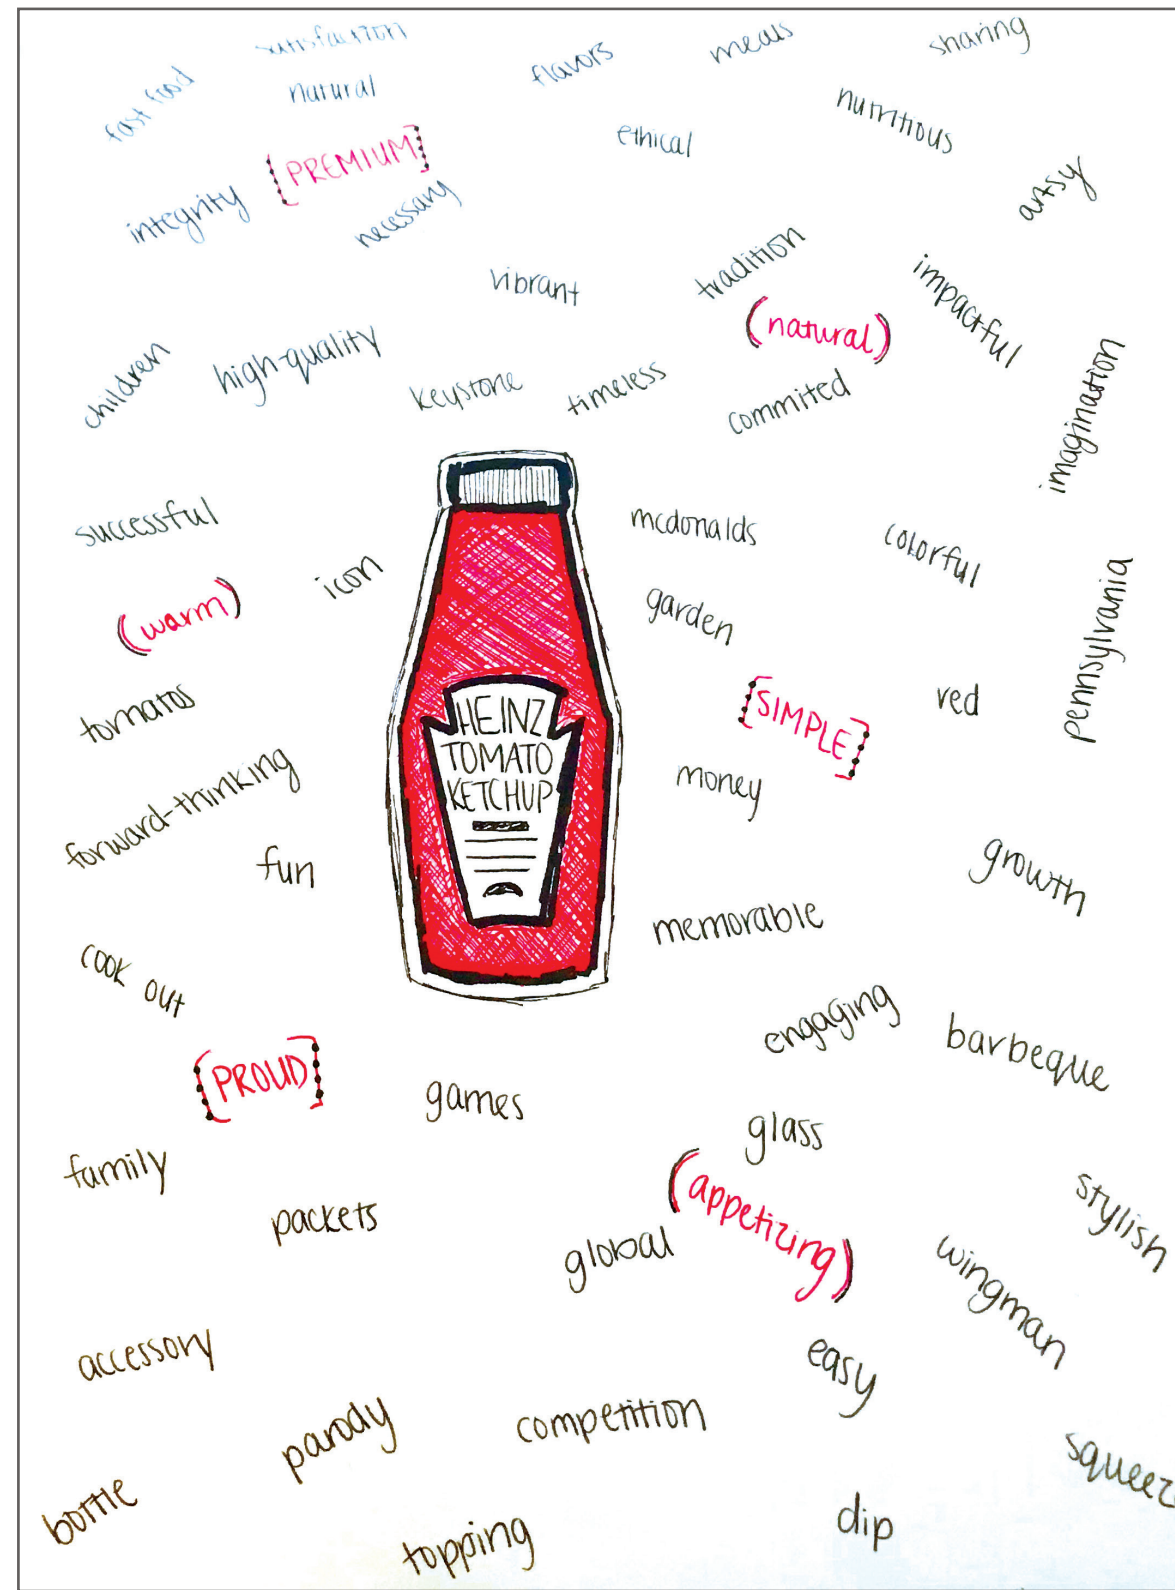 satisfaction
flavors
meals
sharing
fast food
natural
nutritious
ethical
[PREMIUM]
artsy
integrity
necessary
vibrant
tradition
impactful
(natural)
children
high-quality
keystone
timeless
commited
imagination
successful
icon
mcdonalds
colorful
(warm)
garden
pennsylvania
tomatos
[SIMPLE]
red
HEINZ
TOMATO
KETCHUP
forward-thinking
money
fun
growth
memorable
cook out
engaging
barbeque
[PROUD]
games
glass
family
packets
(appetizing)
stylish
global
wingman
accessory
easy
parody
competition
squeez
bottle
topping
dip